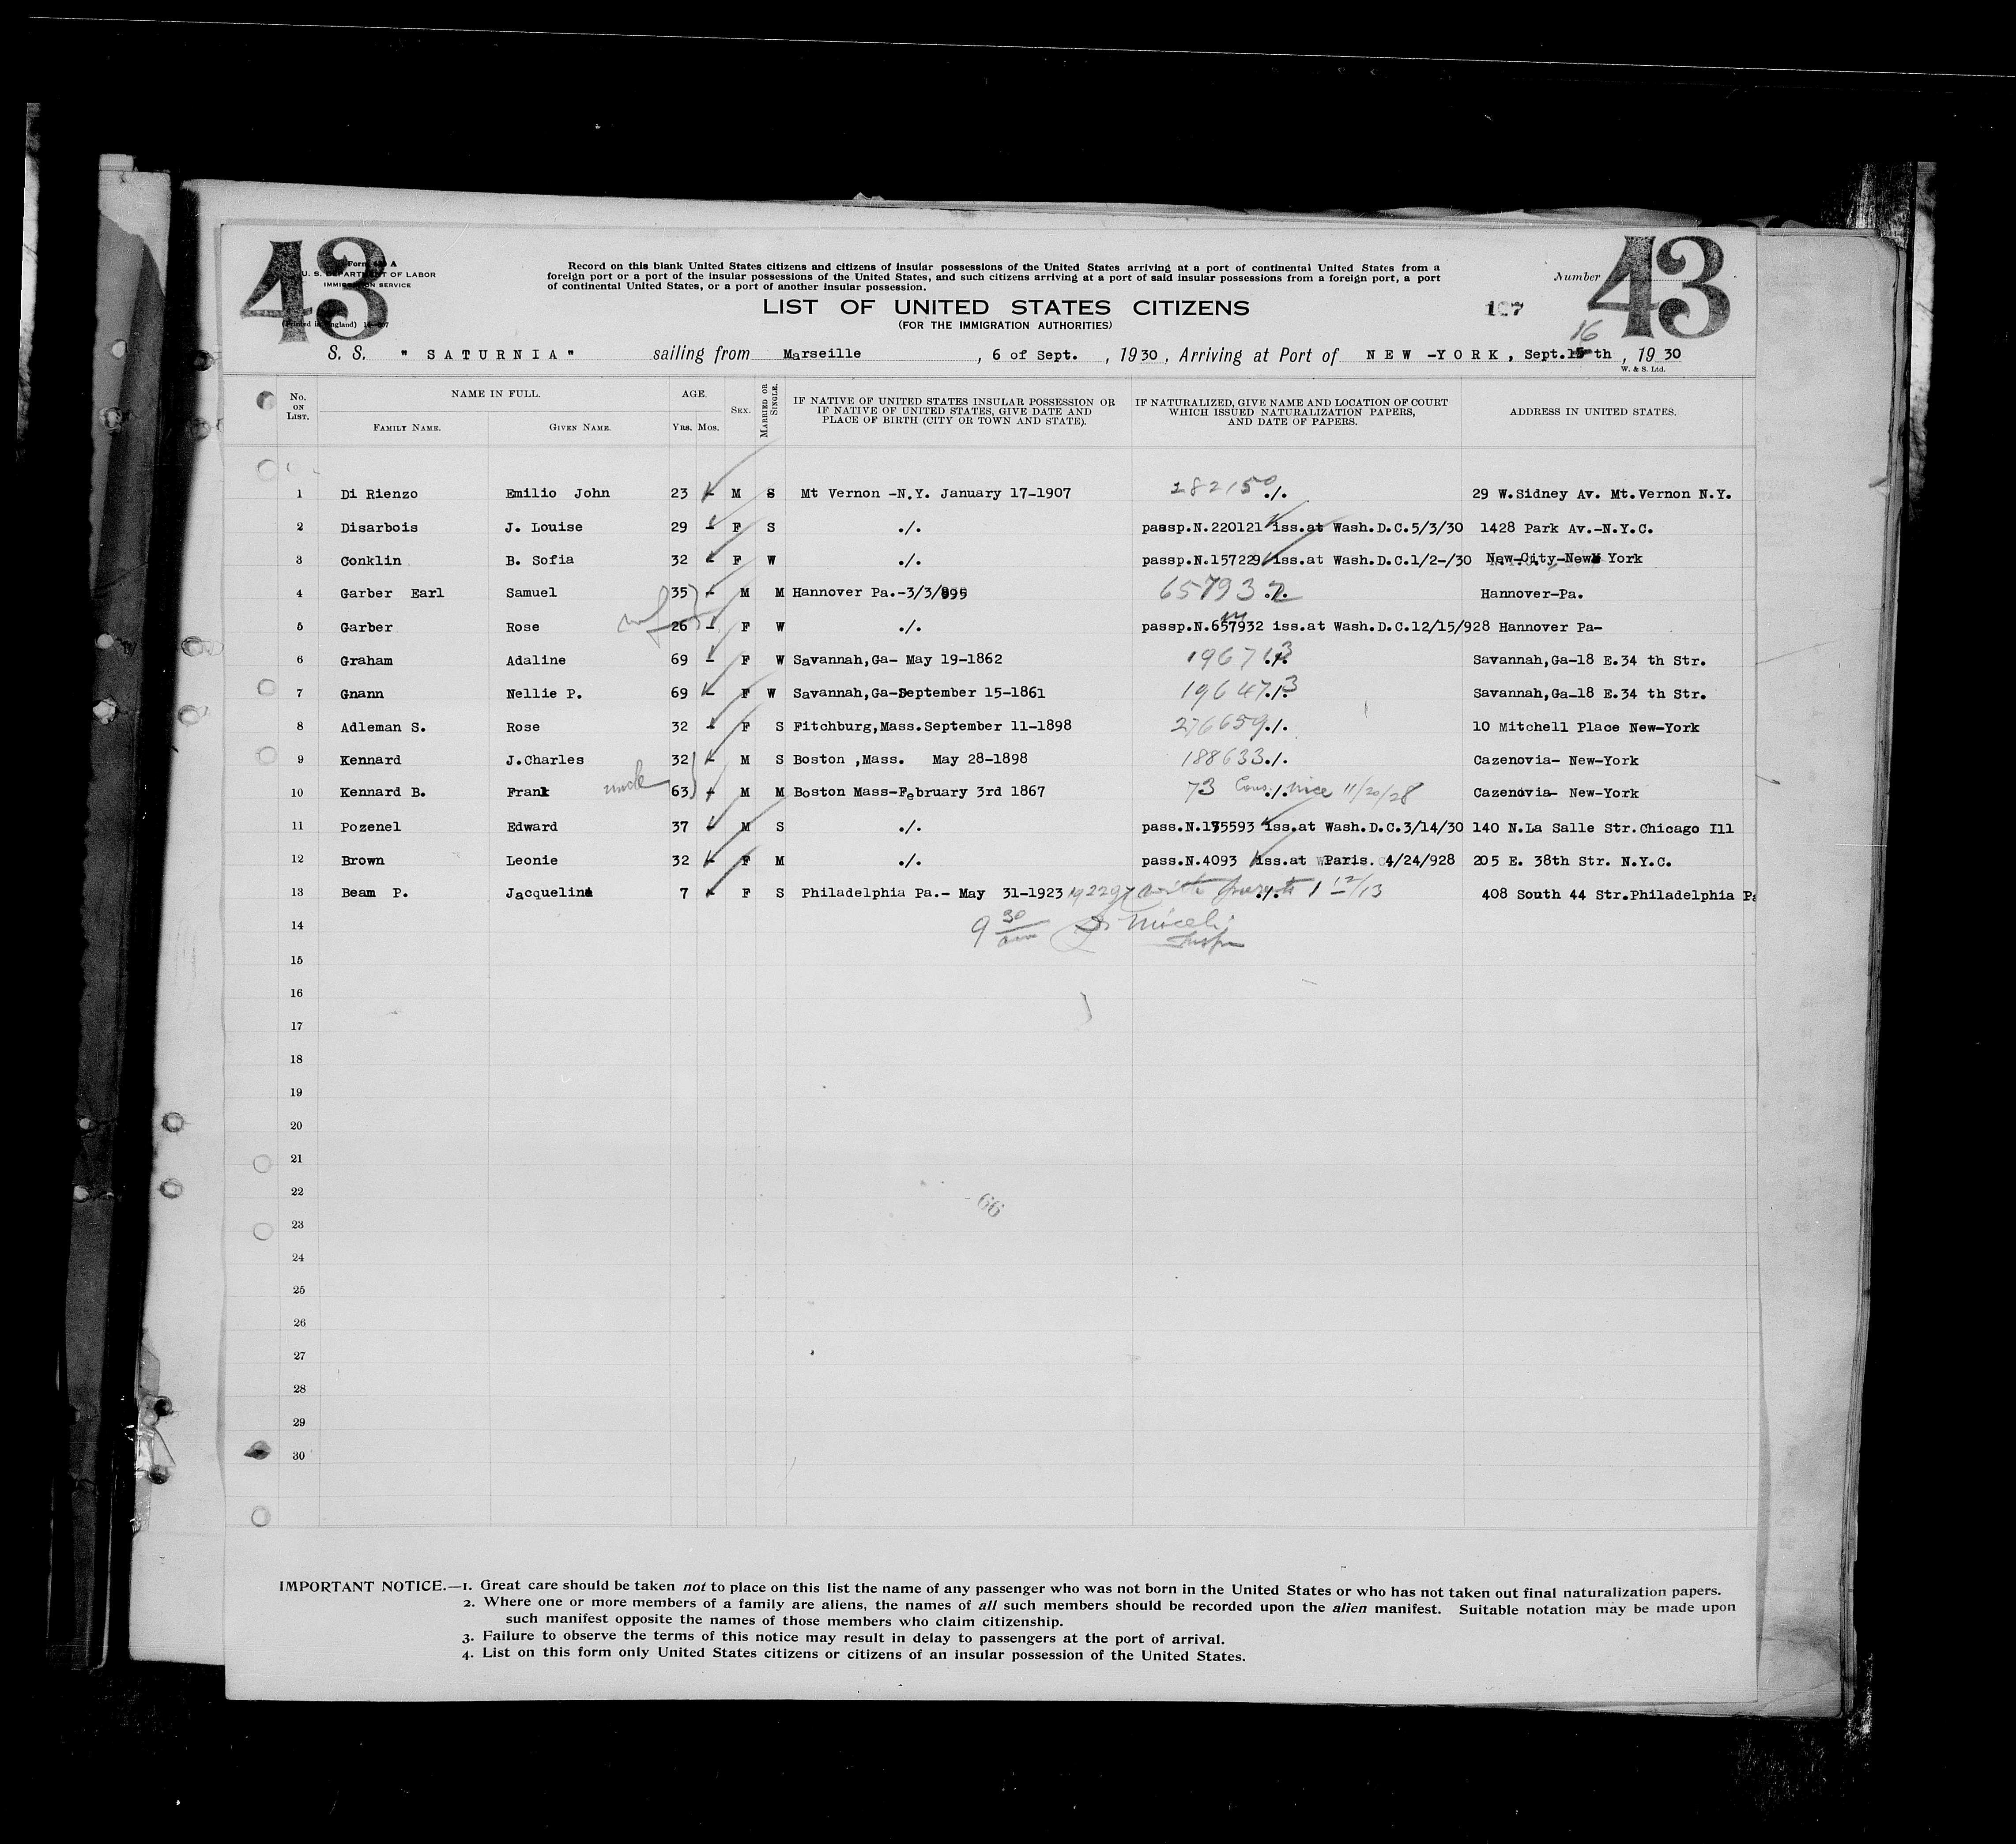 43
Form 630 A
U. S. DEPARTMENT OF LABOR
IMMIGRATION SERVICE
(Printed in England)
Record on this blank United States citizens and citizens of insular possessions of the United States arriving at a port of continental United States from a
foreign port or a port of the insular possessions of the United States, and such citizens arriving at a port of said insular possessions from a foreign port, a port
of continental United States, or a port of another insular possession.
Number 43
LIST OF UNITED STATES CITIZENS
(FOR THE IMMIGRATION AUTHORITIES)
107
S. S. " SATURNIA" sailing from Marseille , 6 of Sept. , 1930 , Arriving at Port of NEW -YORK, Sept. 16 th , 19 30
W. & S. Ltd.
No. ON LIST. NAME IN FULL. FAMILY NAME. GIVEN NAME. AGE. Yrs. Mos. SEX. MARRIED OR SINGLE. IF NATIVE OF UNITED STATES INSULAR POSSESSION OR IF NATIVE OF UNITED STATES, GIVE DATE AND PLACE OF BIRTH (CITY OR TOWN AND STATE). IF NATURALIZED, GIVE NAME AND LOCATION OF COURT WHICH ISSUED NATURALIZATION PAPERS, AND DATE OF PAPERS. ADDRESS IN UNITED STATES.
1 Di Rienzo Emilio John 23 - M S Mt Vernon -N.Y. January 17-1907 282150 ./. 29 W.Sidney Av. Mt.Vernon N.Y.
2 Disarbois J. Louise 29 - F S ./. passp.N.220121 iss.at Wash.D.C.5/3/30 1428 Park Av.-N.Y.C.
3 Conklin B. Sofia 32 - F W ./. passp.N.157229 iss.at Wash.D.C.1/2-/30 New-City-New York
4 Garber Earl Samuel 35 - M M Hannover Pa.-3/3/895 657932 ./. Hannover-Pa.
5 Garber Rose 26 - F W ./. passp.N.657932 iss.at Wash.D.C.12/15/928 Hannover Pa-
6 Graham Adaline 69 - F W Savannah,Ga- May 19-1862 ./. Savannah,Ga-18 E.34 th Str.
7 Gnann Nellie P. 69 - F W Savannah,Ga-September 15-1861 ./. Savannah,Ga-18 E.34 th Str.
8 Adleman S. Rose 32 - F S Fitchburg,Mass.September 11-1898 276659 ./. 10 Mitchell Place New-York
9 Kennard J.Charles 32 - M S Boston ,Mass. May 28-1898 188633 ./. Cazenovia- New-York
10 Kennard B. Frank uncle 63 - M M Boston Mass-February 3rd 1867 73 Cons. ./. Nice 11/20/28 Cazenovia- New-York
11 Pozenel Edward 37 - M S ./. pass.N.175593 iss.at Wash.D.C.3/14/30 140 N.La Salle Str.Chicago Ill
12 Brown Leonie 32 - F M ./. pass.N.4093 iss.at Paris. 4/24/928 205 E. 38th Str. N.Y.C.
13 Beam P. Jacqueline 7 - F S Philadelphia Pa.- May 31-1923 with ./. 408 South 44 Str.Philadelphia Pa
14 9 30 am Miceli
Inspr
15
16
17
18
19
20
21
22
66
23
24
25
26
27
28
29
30
IMPORTANT NOTICE.—1. Great care should be taken not to place on this list the name of any passenger who was not born in the United States or who has not taken out final naturalization papers.
2. Where one or more members of a family are aliens, the names of all such members should be recorded upon the alien manifest. Suitable notation may be made upon
such manifest opposite the names of those members who claim citizenship.
3. Failure to observe the terms of this notice may result in delay to passengers at the port of arrival.
4. List on this form only United States citizens or citizens of an insular possession of the United States.